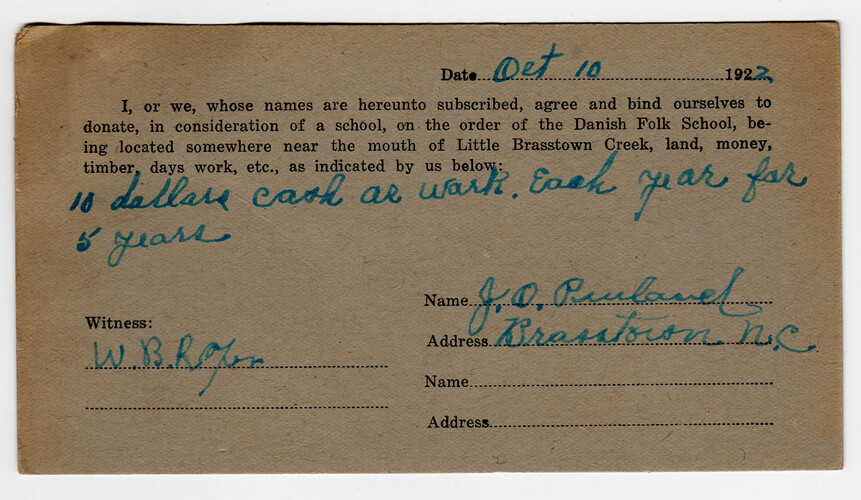 Date Oct 10 1922
I, or we, whose names are hereunto subscribed, agree and bind ourselves to
donate, in consideration of a school, on the order of the Danish Folk School, be-
ing located somewhere near the mouth of Little Brasstown Creek, land, money,
timber, days work, etc., as indicated by us below:
10 dollars cash or work. Each year for
5 years
Name J. O. Penland
Witness:
Address Brasstown N.C.
W. B. Roper
Name
Address